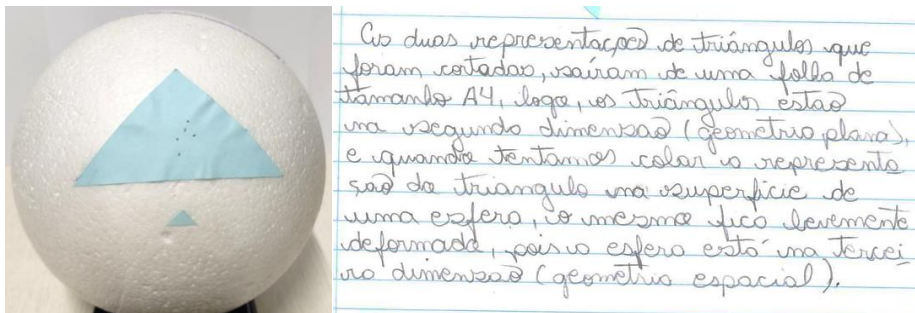 As duas representações de triângulos que
foram cortadas, saíram de uma folha de
tamanho A4, logo, os triângulos estão
na segunda dimensão (geometria plana),
e quando tentamos colar a representa
ção do triangulo na superfície de
uma esfera, o mesmo fica levemente
deformado, pois a esfera está na tercei_
ra dimensão (geometria espacial).